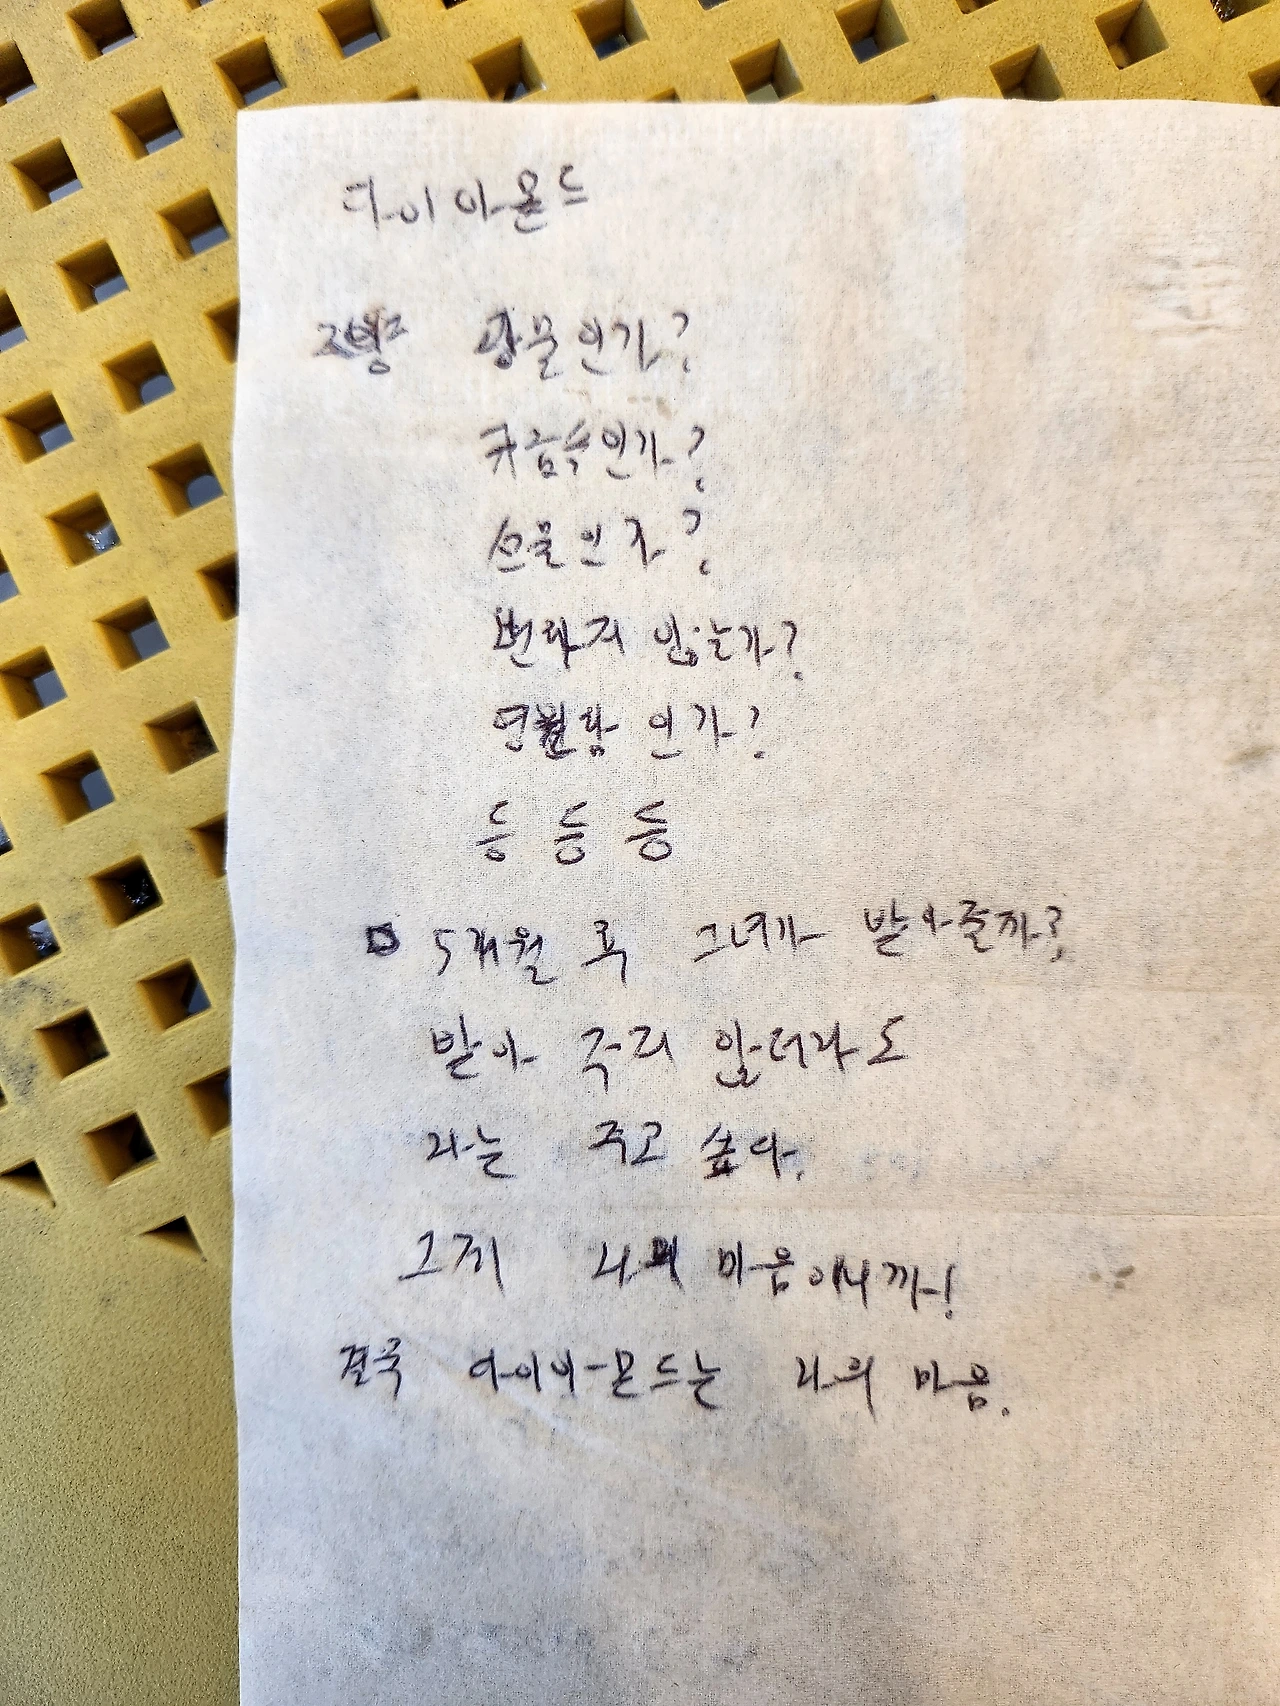 다이아몬드
광물인가?
귀금속인가?
선물인가?
변하지 않는가?
영원함 인가?
등 등 등
5개월 후 그녀가 받아줄까?
받아 주지 않더라도
나는 주고 싶다.
그게 나의 마음이니까!
결국 다이아몬드는 나의 마음.